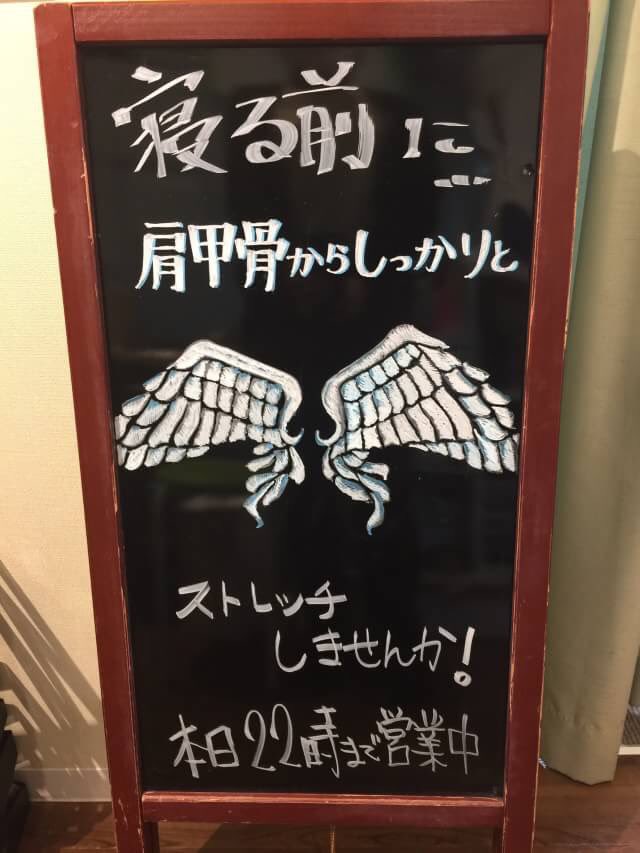 寝る前に
肩甲骨からしっかりと
ストレッチ
しませんか!
本日22時まで営業中